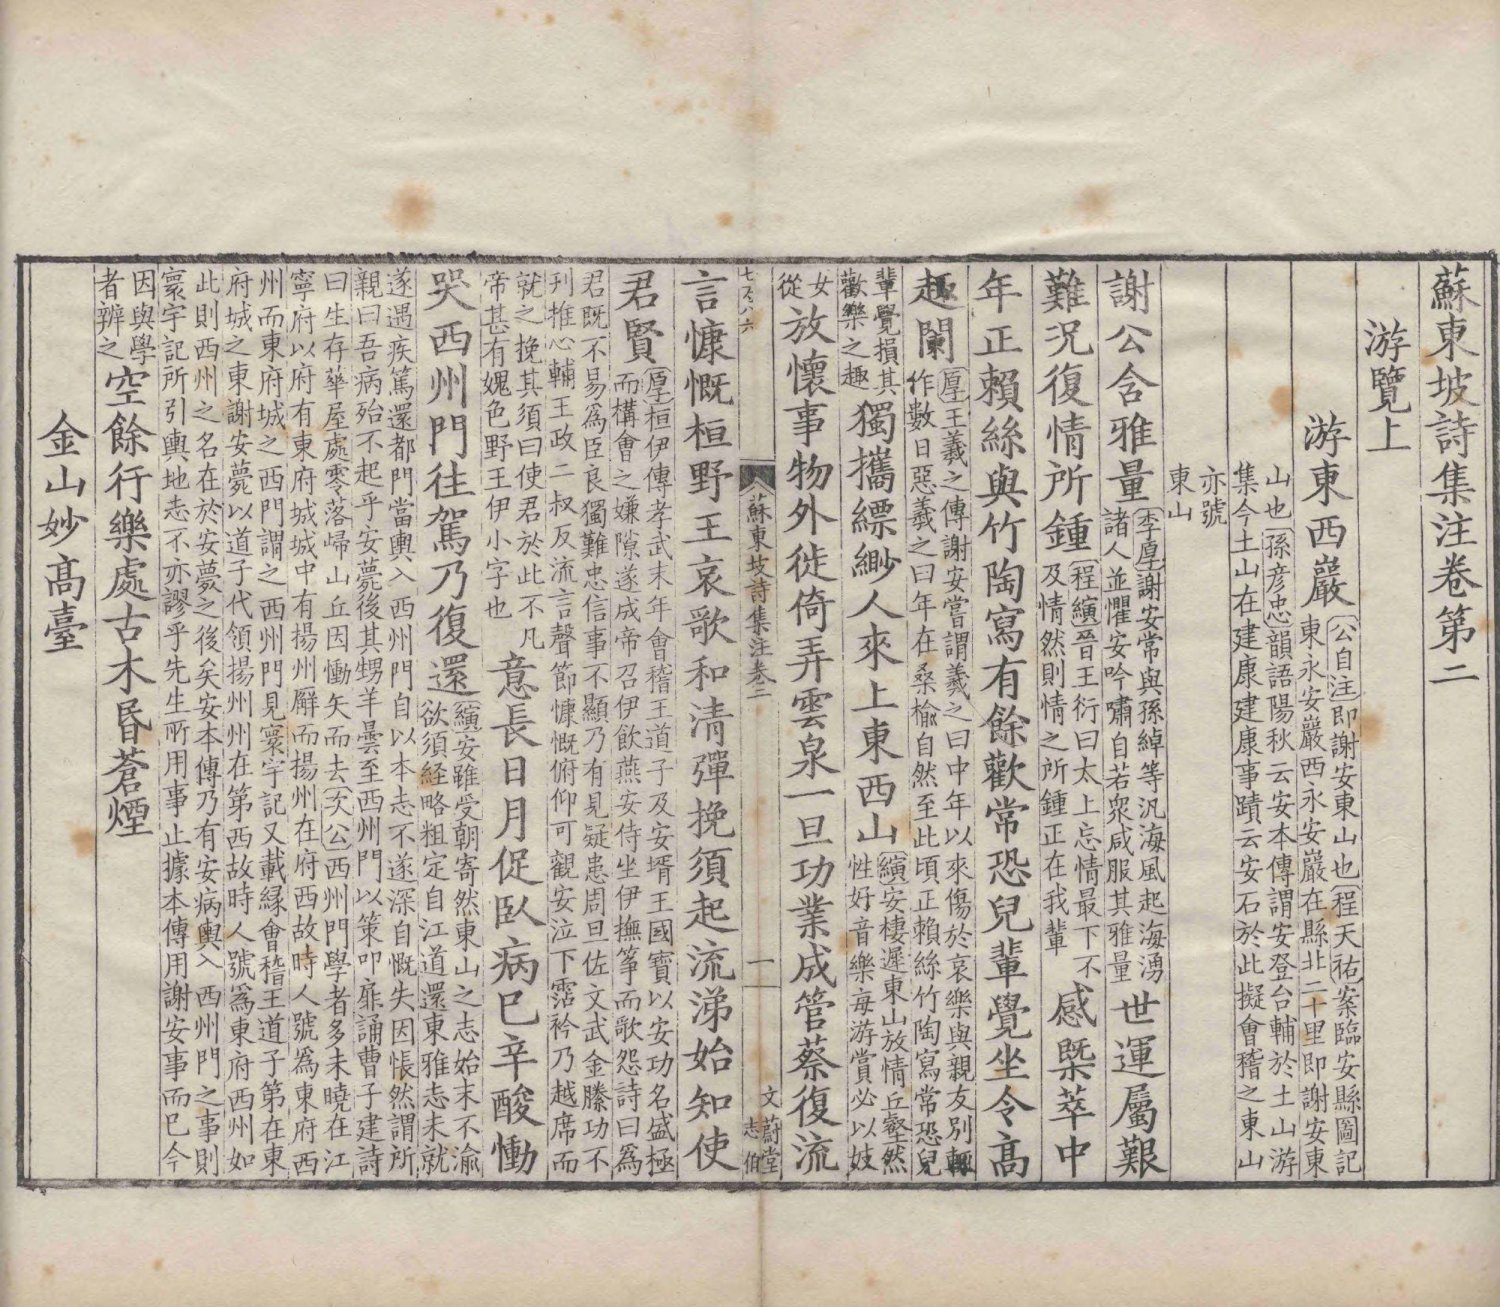 蘇東坡詩集注卷第二
游覽上
游東西巖
公自注即謝安東山也程天祐案臨安縣圖記
東永安巖西永安巖在縣北二十里即謝安東
山也孫彥忠韻語陽秋云安本傳謂安登台輔於土山游
集今土山在建康建康事蹟云安石於此擬會稽之東山
亦號
東山
謝公含雅量
李厚謝安常與孫綽等汎海風起海湧
諸人並懼安吟嘯自若衆咸服其雅量
世運屬艱
難況復情所鍾
程縯晉王衍曰太上忘情最下不
及情然則情之所鍾正在我輩
感槩萃中
年正賴絲與竹陶寫有餘歡常恐兒輩覺坐令高
趣闌
厚王羲之傳謝安嘗謂羲之曰中年以來傷於哀樂與親友別輙
作數日惡羲之曰年在桑榆自然至此頃正賴絲竹陶寫常恐兒
輩覺損其
歡樂之趣
獨攜縹緲人來上東西山
縯安棲遲東山放情丘壑然
性好音樂每游賞必以妓
女
從
放懷事物外徙倚弄雲泉一旦功業成管蔡復流
蘇東坡詩集注卷二
一
文蔚堂
志伯
言慷慨桓野王哀歌和清彈挽須起流涕始知使
君賢
厚桓伊傳孝武末年會稽王道子及安壻王國寶以安功名盛極
而構會之嫌隙遂成帝召伊飲燕安侍坐伊撫箏而歌怨詩曰爲
君既不易爲臣良獨難忠信事不顯乃有見疑患周旦佐文武金縢功不
刋推心輔王政二叔反流言聲節慷慨俯仰可觀安泣下霑衿乃越席而
就之挽其須曰使君於此不凡
帝甚有媿色野王伊小字也
意長日月促臥病已辛酸慟
哭西州門往駕乃復還
縯安雖受朝寄然東山之志始末不渝
欲須経略粗定自江道還東雅志未就
遂遇疾篤還都門當輿入西州門自以本志不遂深自慨失因悵然謂所
親曰吾病殆不起乎安薨後其甥羊曇至西州門以策叩扉誦曹子建詩
曰生存華屋處零落歸山丘因慟矢而去次公西州門學者多未曉在江
寧府以府有東府城城中有揚州廨而揚州在府西故時人號爲東府西
州而東府城之西門謂之西州門見寰宇記又載緣會稽王道子第在東
府城之東謝安薨以道子代領揚州州在第西故時人號爲東府西州如
此則西州之名在於安薨之後矣安本傳乃有安病輿入西州門之事則
寰宇記所引輿地志不亦謬乎先生所用事止據本傳用謝安事而已今
因與學
者辨之
空餘行樂處古木昏蒼煙
金山妙高臺